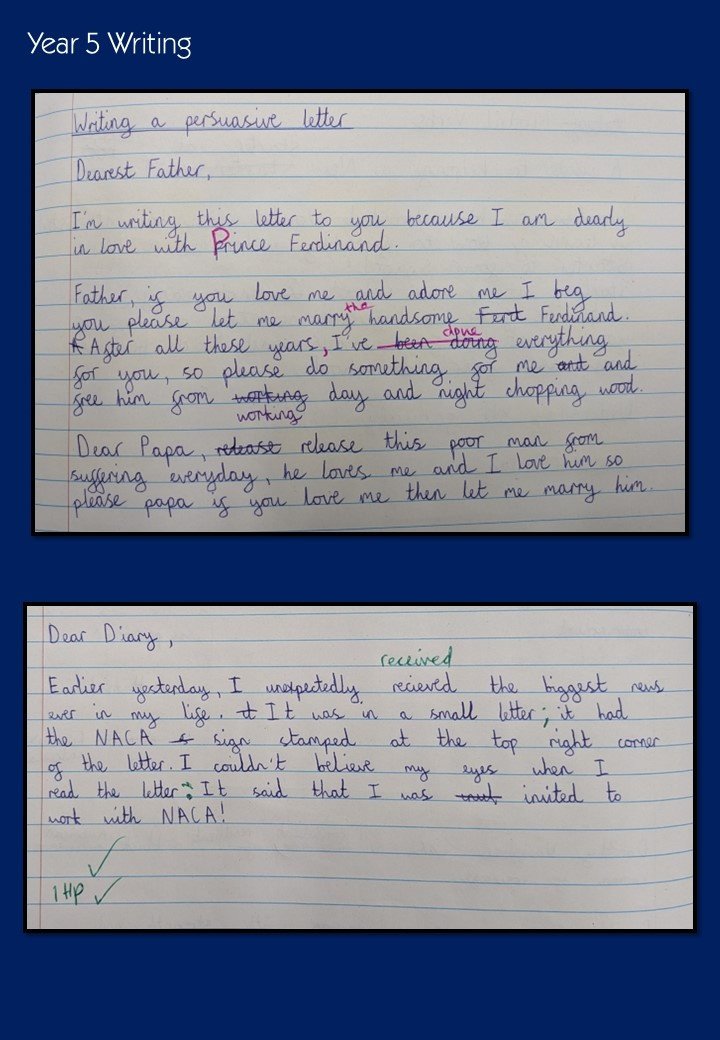 Year 5 Writing
Writing a persuasive letter
Dearest Father,
I'm writing this letter to you because I am dearly
in love with Prince Ferdinand.
Father, if you love me and adore me I beg
the
you please let me marry handsome Ferd Ferdinand.
done
After all these years, I've been doing everything
for you, so please do something for me and and
free him from working day and night chopping wood.
working
Dear Papa, release release this poor man from
suffering everyday, he loves me and I love him so
please papa if you love me then let me marry him.
Dear Diary,
received
Earlier yesterday, I unexpectedly recieved the biggest news
ever in my life. It was in a small letter; it had
the NACA s sign stamped at the top right corner
of the letter. I couldn't believe my eyes when I
read the letter: It said that I was invited to
work with NACA!
1 HP ✓